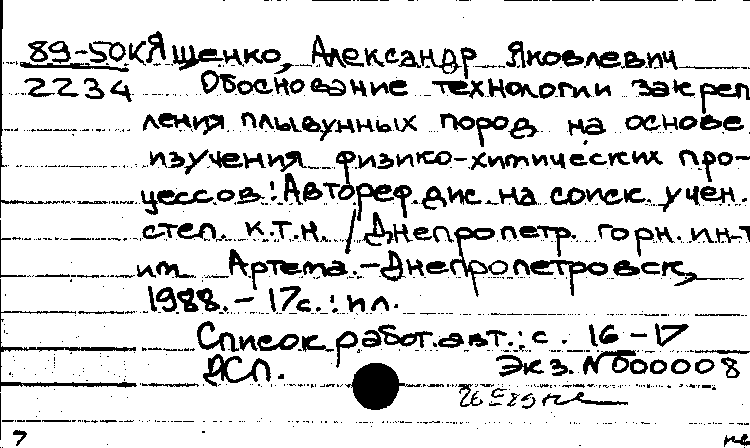 89-50К Ященко, Александр Яковлевич
2234 Обоснование технологии закреп
ления плывунных пород на основе
изучения физико-химических про-
цессов: Автореф. дис. на соиск. учен.
степ. к.т.н. / Днепропетр. горн. ин-т
им. Артема. - Днепропетровск,
1988. - 17с.: ил.
Список работ. авт.: с. 16-17
ДСП. Экз. N 000008
7 не